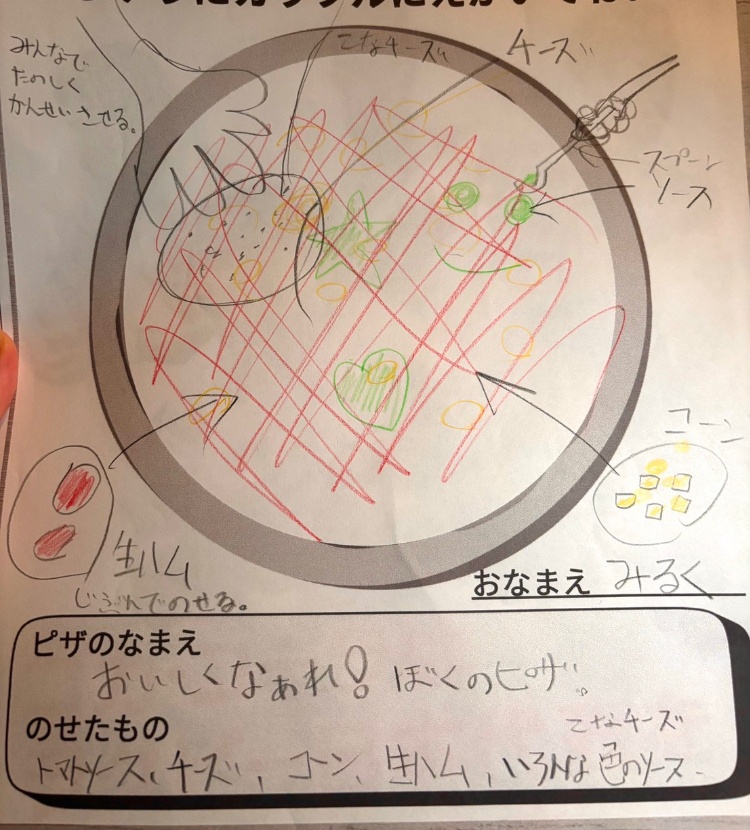 みんなで
たのしく
かんせいさせる。
こなチーズ
チーズ
スプーン
ソース
コーン
生ハム
じぶんでのせる。
おなまえ みるく
ピザのなまえ
おいしくなぁれ!ぼくのピザ。
のせたもの
こなチーズ
トマトソース、チーズ、コーン、生ハム、いろんな色のソース